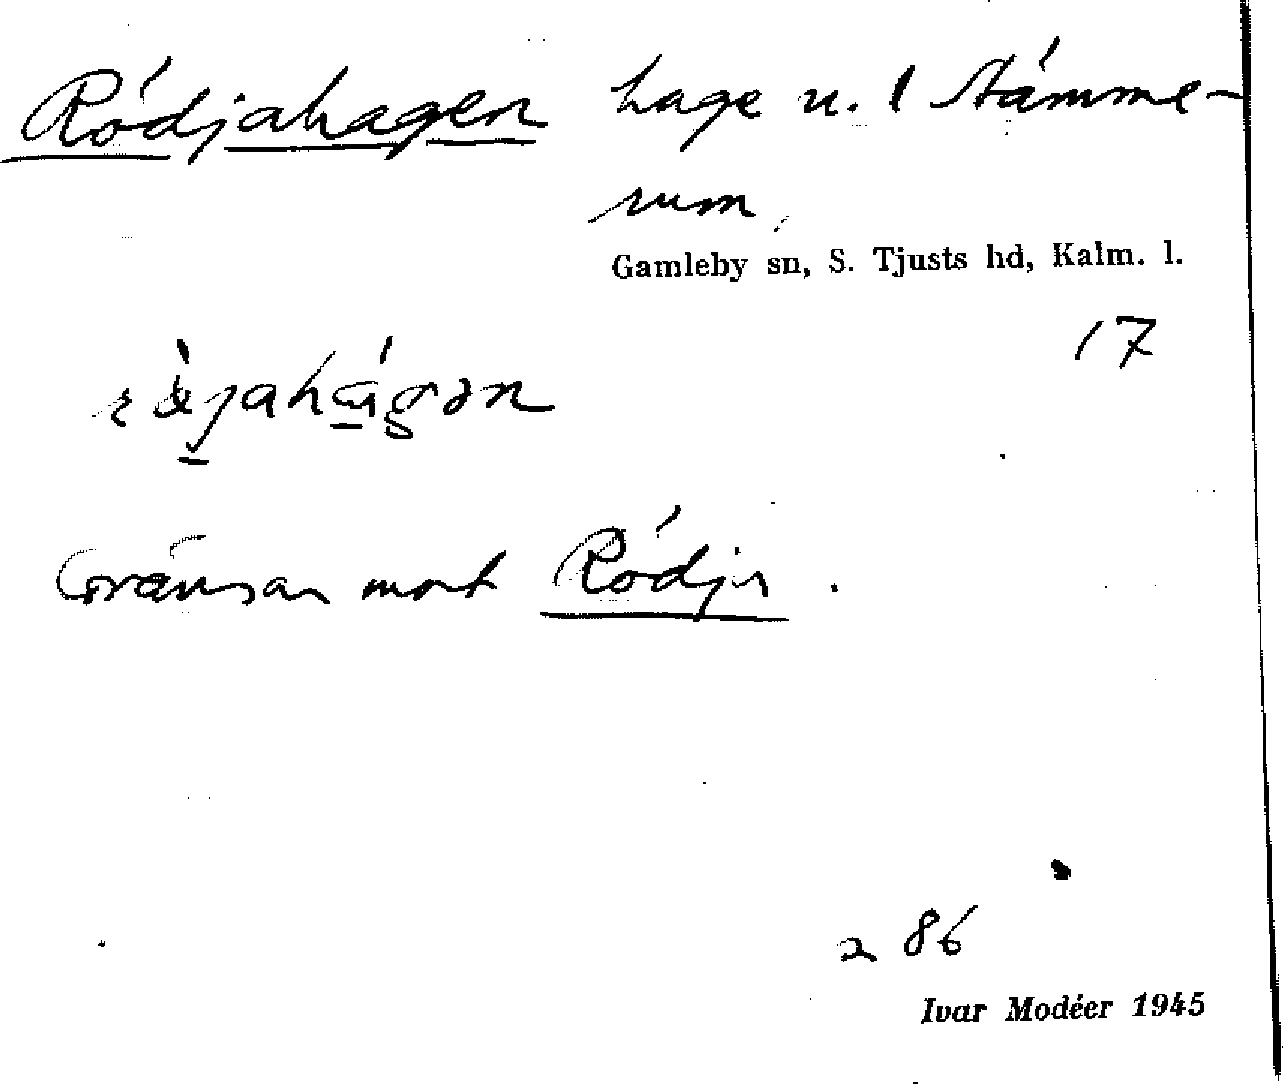 Rödjahagen hage u. 1 Stämme-
rum.
Gamleby sn, S. Tjusts hd, Kalm. l.
17
Gränsar mot Rödja.
a 86
Ivar Modéer 1945